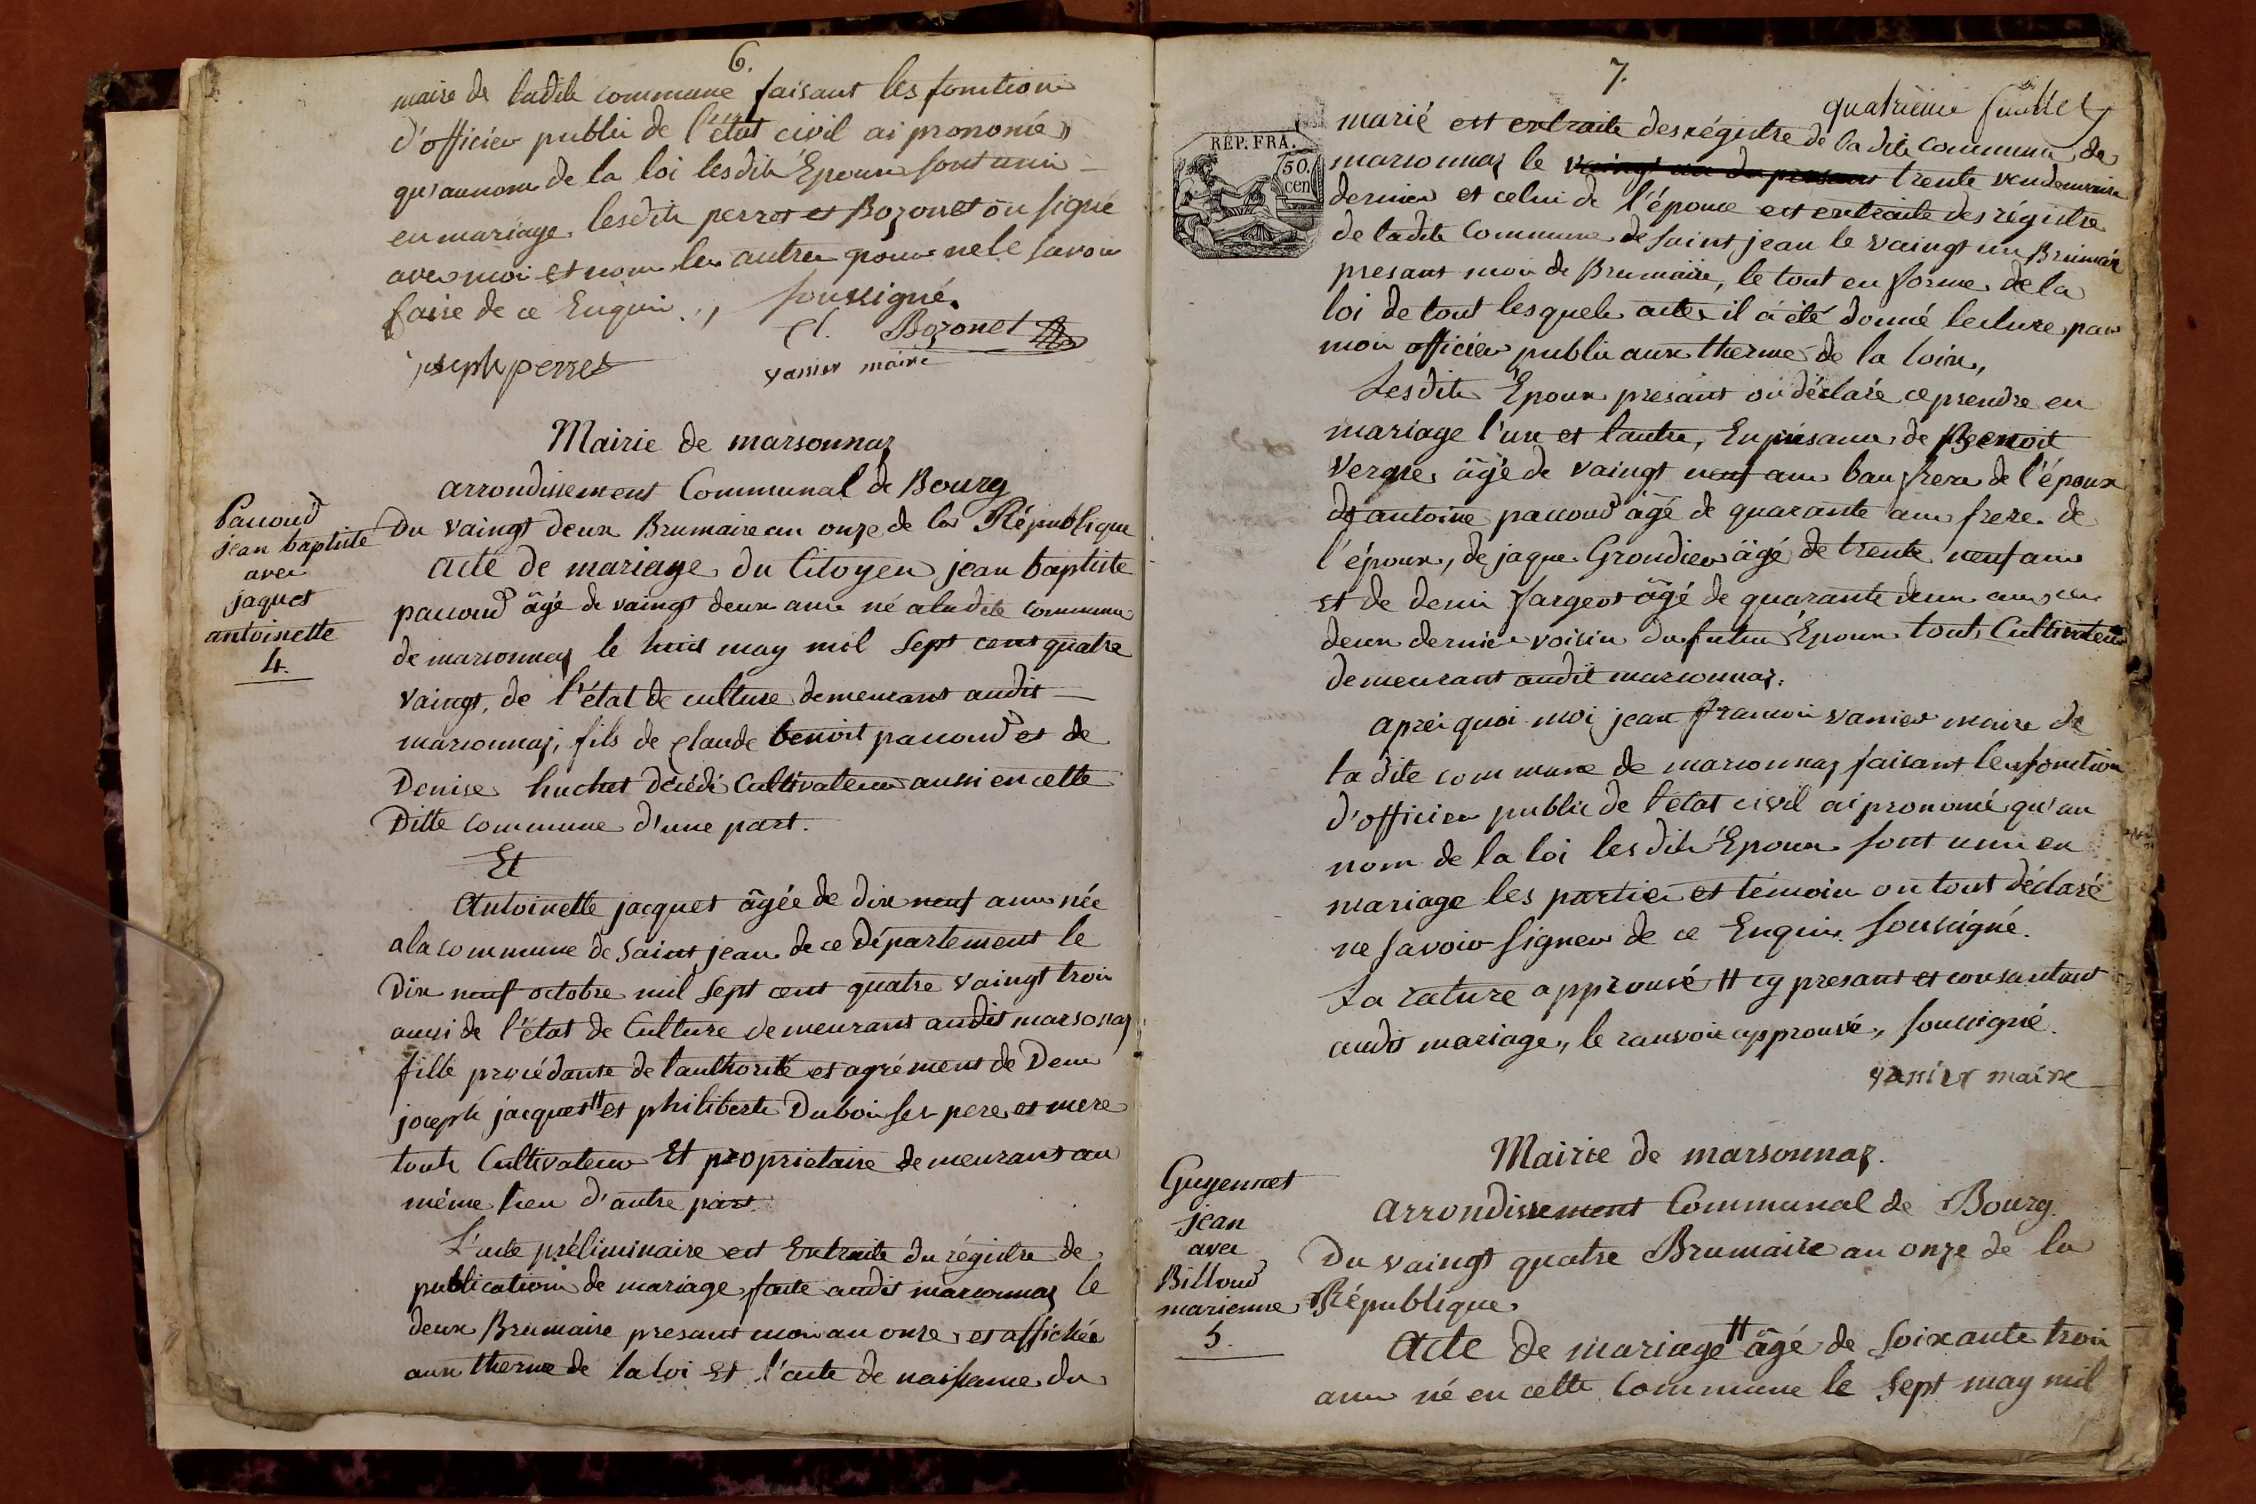 6.
maire de ladite commune faisant les fonction
d'officier public de l'état civil ai prononcé
qu'aunom de la loi lesdits Epoux sont unis
en mariage. lesdits perret et Bozonet on signé
avec moi et non les autres pour ne le savoir
faire de ce Enquis., soussigné.
Cl. Bozonet
joseph perret
vanier maire
Mairie de marsonnaz
arrondissement Communal de Bourg
Pauoud
jean baptiste
avec
jaquet
antoinette
4.
Du vaingt deux Brumaire an onze de la République
acte de mariage du Citoyen jean baptiste
pauoud âgé de vaingt deux ans né a ladite commune
de marsonnaz le huit may mil sept cent quatre
vaingt, de l'état de culture demeurant audit
marsonnaz, fils de Claude benoit pauoud et de
Denise huchet décédé Cultivateur aussi en cette
Ditte commune d'une part.
Et
Antoinette jacquet âgée de dix neuf ans née
a la commune de Saint jean de ce Département le
Dix neuf octobre mil sept cent quatre vaingt trois
aussi de l'état de Culture demeurant audit marsonaz
fille procédante de l'authorité et agrément de Deux
joseph jacquet # et philiberte Dubois ses pere et mere
touts Cultivateur Et propriétaire demeurant au
même lieu d'autre part.
L'acte préliminaire est Extraite du régistre de
publications de mariage faite audit marsonnaz le
deux Brumaire presant mois an onze, et affichée
aux therme de la loi Et l'acte de naissance du
7.
quatrieme feuillet
RÉP. FRA.
50.
cen
marié est extraite des régistre de ladite commune de
marsonnaz le vaingt un du presant trente vendemiaire
dernier et celui de l'épouse est extraite des régistre
de ladite Commune de saint jean le vaingt un Brumaire
presant mois de Brumaire, le tout en forme de la
loi de tout lesquels actes il a été donné lecture par
moi officier public aux therme de la loix,
Lesdits Epoux presant on déclaré ce prendre en
mariage l'un et lautre, En présance de Benoit
Verne âgé de vaingt neuf ans bau frere de l'époux
de antoine pauoud âgé de quarante ans frere de
l'époux, de jaque Grondier âgé de trente neuf ans
et de denis fargeot âgé de quarante deux ans ces
deux dernier voisin du futur Epoux touts Cultivateur
demeurant audit marsonnaz.
après quoi moi jean francois vanier maire de
ladite commune de marsonnaz faisant les fonction
d'officier public de l'état civil ai prononcé qu'au
nom de la loi lesdits Epoux sont unis en
mariage les parties et témoin on tout déclaré
ne savoir signer de ce Enquis. soussigné.
La rature approuvé # cy presant et consantant
audit mariage,, le ranvoi approuvé,, soussigné.
vanier maire
Mairie de marsonnaz.
arrondissement Communal de Bourg.
Guyennet
jean
avec
Billoud
marienne
5.
Du vaingt quatre Brumaire an onze de la
République
Acte de mariage # âgé de soixante trois
ans né en cette Commune le sept may mil